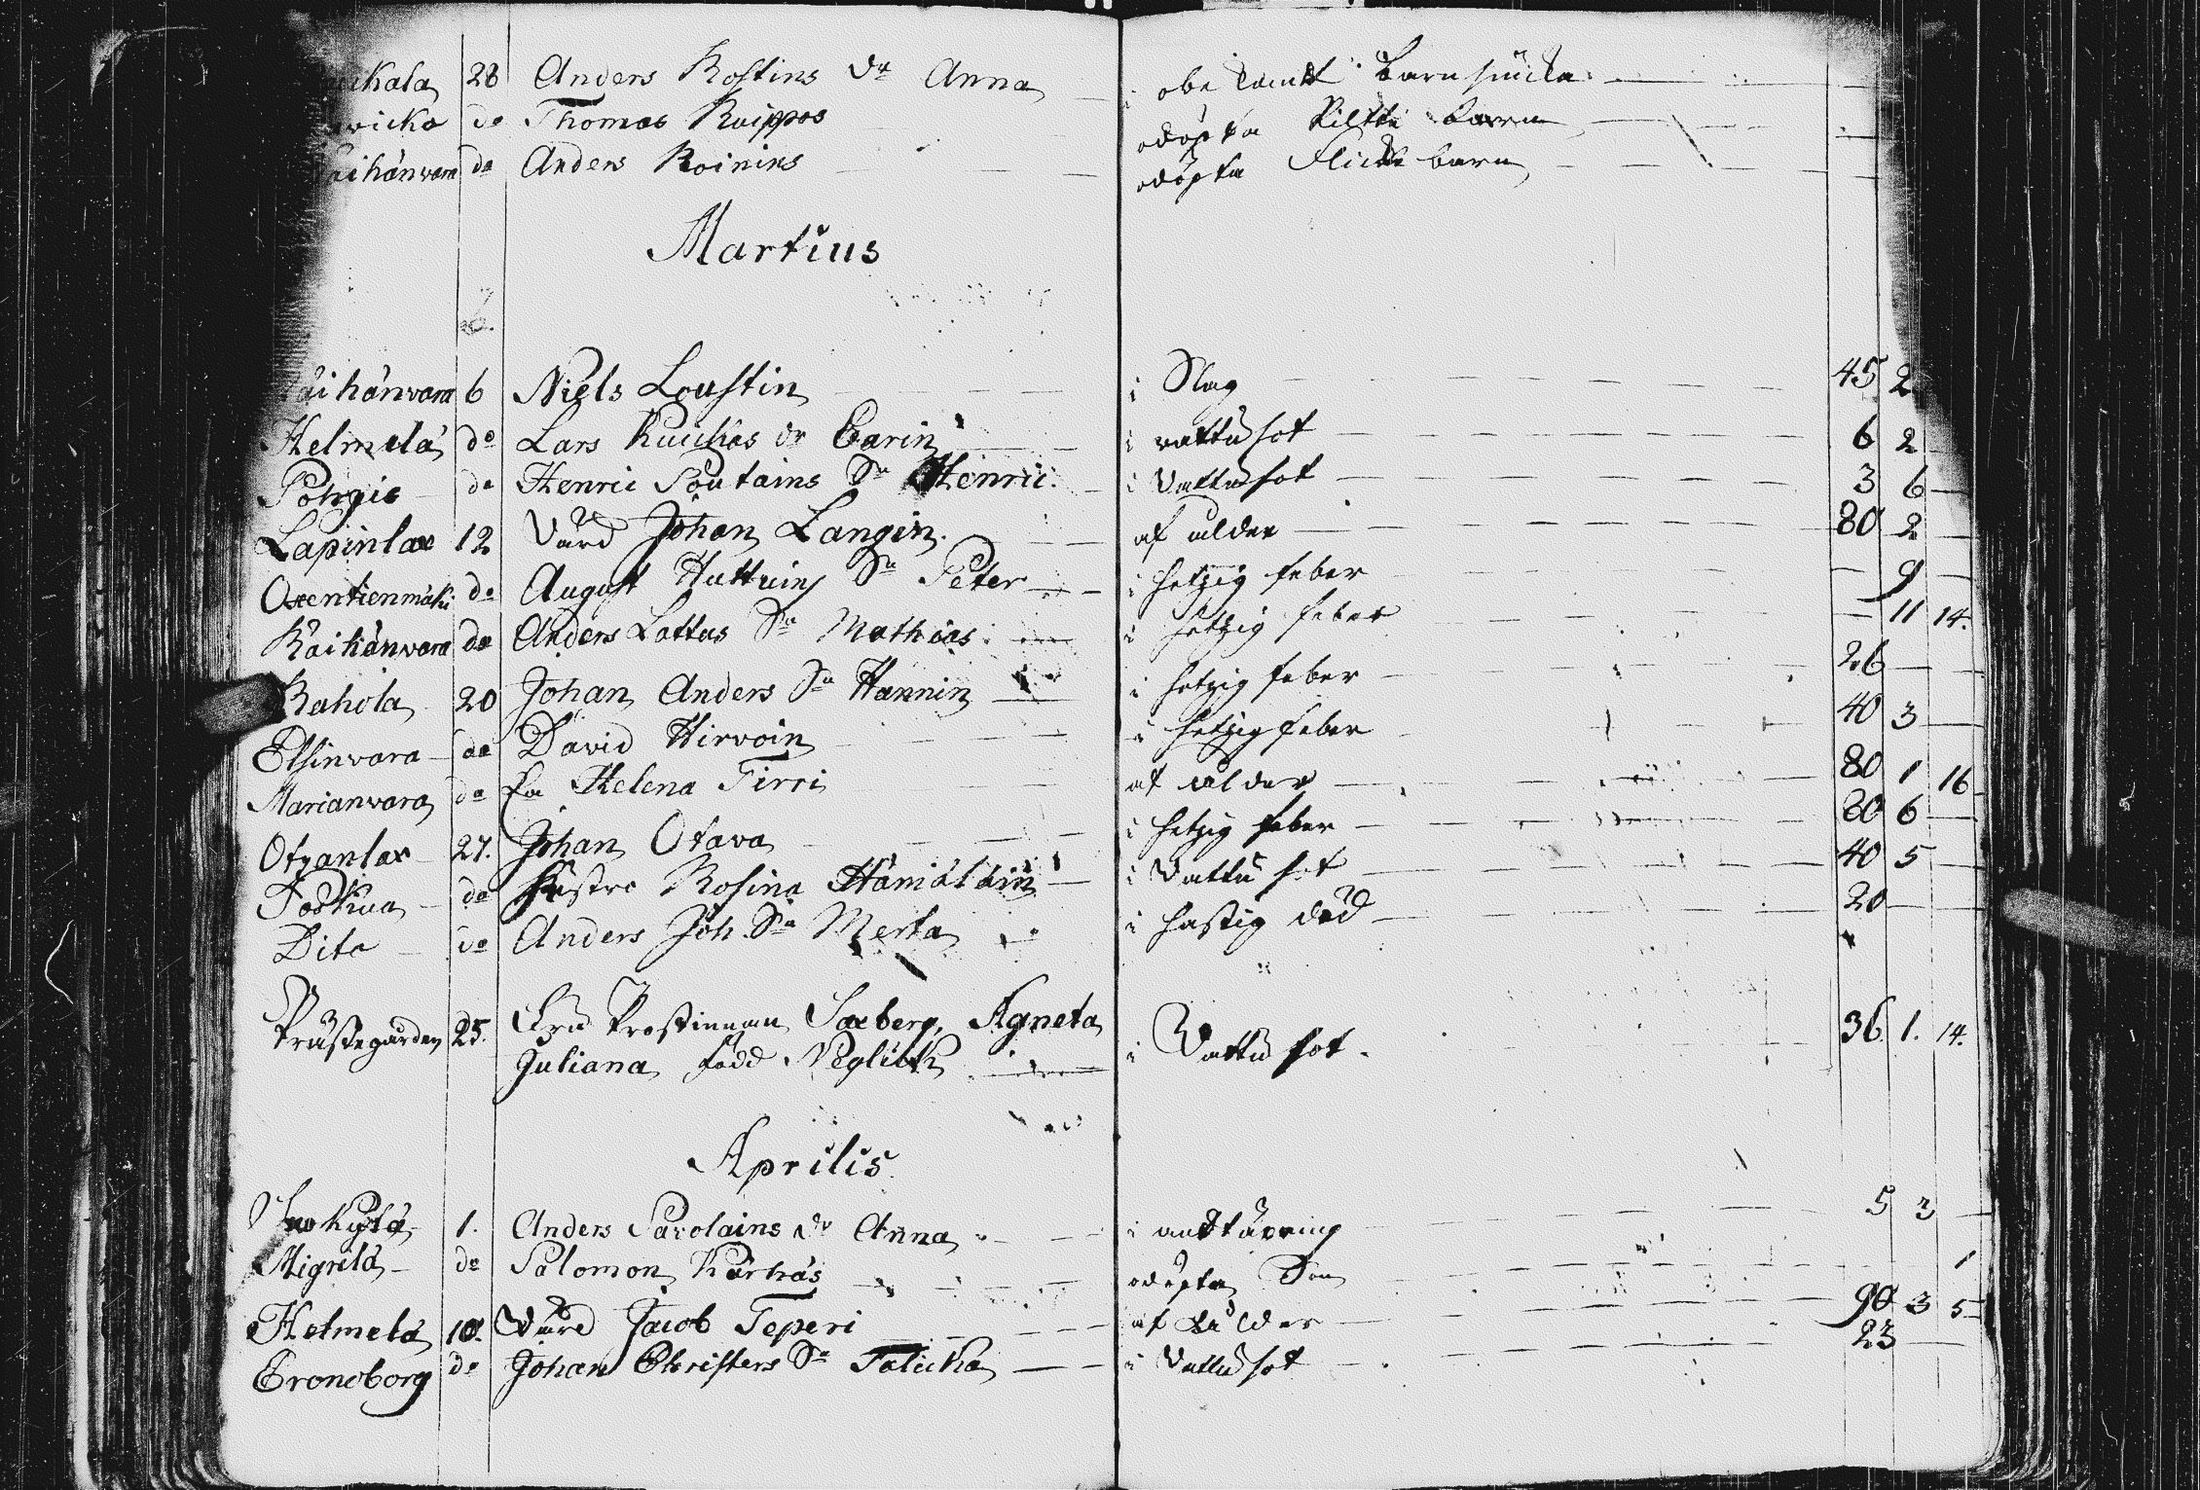 28 Anders Rostins dr Anna i obekandt barnsiucka
do Thomas Ruippos odöpta Piltte barn
do Anders Roinins odöpta Flicke barn
Martius
Räihänwara 6 Niels Loustin i Slag 45 2
Helmelä do Lars Kuckos dr Carin i wattusot 6 2
Pohgio do Henric Poutains Sn Henric i Wattusot 3 6
Lapinlax 12 Vård Johan Langin af ålder 80 2
Oxentienmäki do August Hattuins Sn Peter i hetzig feber 9
Räihänwara do Anders Lattus Sn Mathias i hetzig feber 11 14.
Rahola 20 Johan Anders Sn Hannin i hetzig feber 26
Elsinwara do David Hirvoin i hetzig feber 40 3
Marianwara do Ea Helena Tirri af ålder 80 1 16
Otzanlax 27. Johan Otava i hetzig feber 80 6
do Hustro Rosina Hämäläin i Wattusot 40 5
Dito do Anders Joh. Sn Merta i hastig död 20
Prästegården 25. Fru Prostinnan Saxberg, Agneta
Juliana född Neglick i Wattusot. 36. 1. 14.
Aprilis
1. Anders Savolains dr Anna i uttäring 5 3
Migrilä do Salomon Kärhäs odöpta Son 1
Helmelä 10. Vård Jacob Teperi af ålder 90 3 5
Cronoborg do Johan Christers Sn Talicka i Wattusot 23